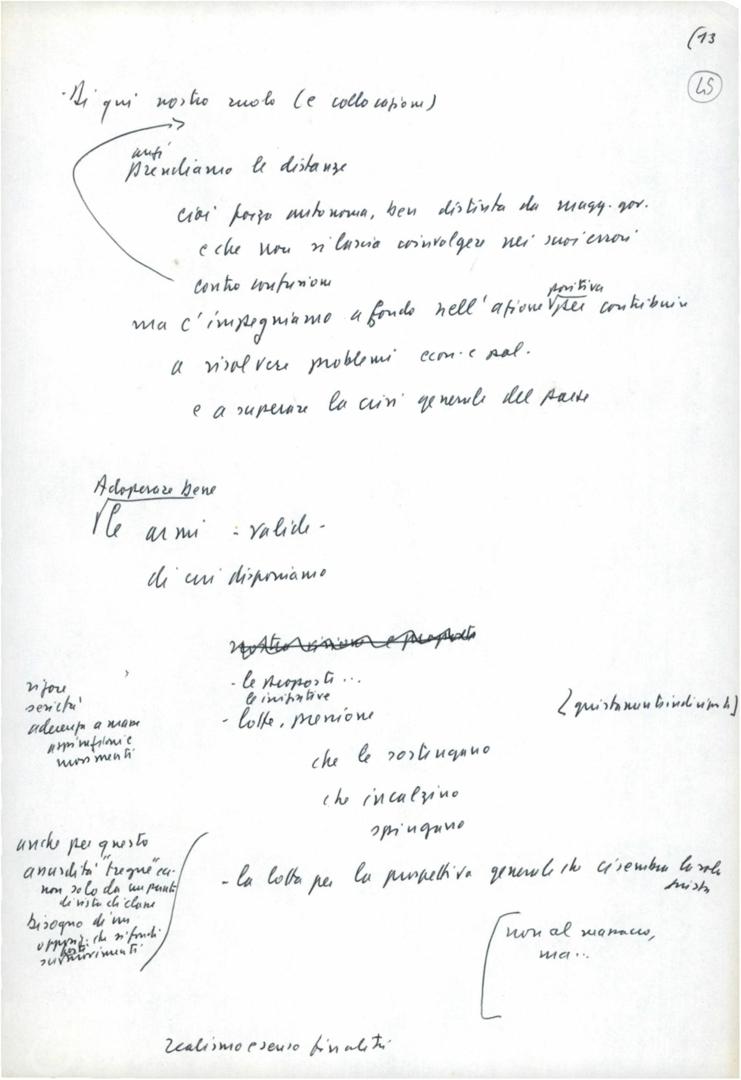 (13
45
- Di qui nostro ruolo (e collocazione)
anzi
prendiamo le distanze
cioè forza autonoma, ben distinta da magg. gov.
e che non si lascia coinvolgere nei suoi errori
contro confusione
positiva
ma c'impegniamo a fondo nell'azione per contribuire
a risolvere problemi econ. e sal.
e a superare la crisi generale del paese
Adoperare bene
le armi - valide -
di cui disponiamo
nostra visione e proposta
- le proposte...
le iniziative
- lotte, pressione
che le sostengano
che incalzino
spingano
rigore
serietà
aderenza a masse
aspirazioni e
movimenti
[questa non
anche per questo
assurdità "tregue"
non solo da un punto
di vista di classe
bisogno di un
che si fondi
sui movimenti
- la lotta per la prospettiva generale che ci sembra la sola
giusta
[non al massacro,
ma...
realismo e senso finalità